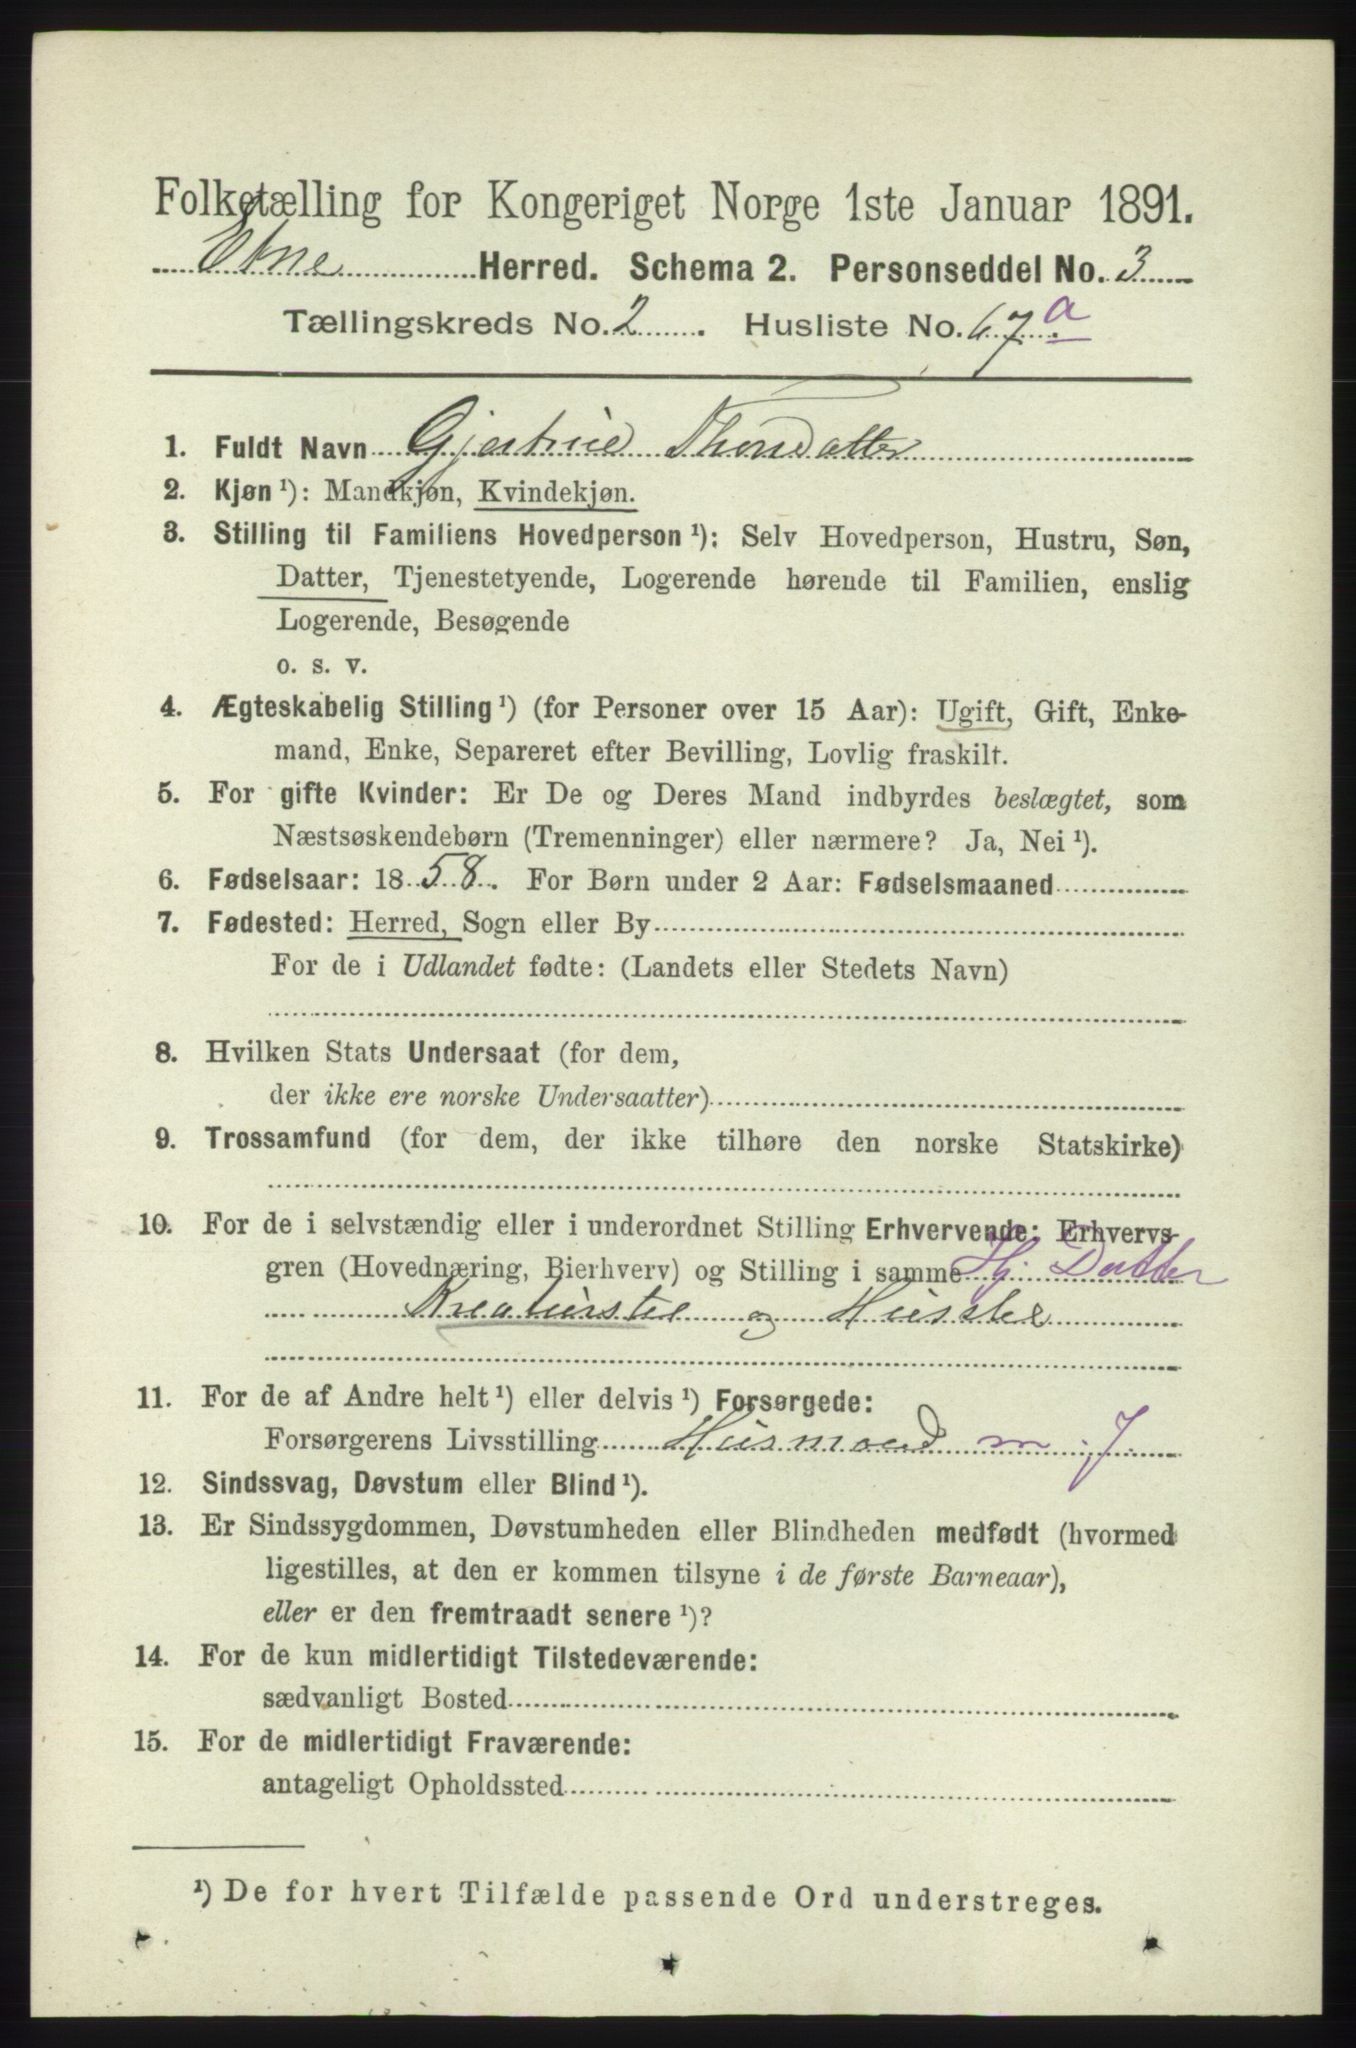 Folketælling for Kongeriget Norge 1ste Januar 1891.
Etne Herred. Schema 2. Personseddel No. 3
Tællingskreds No. 2. Husliste No. 67 a
1. Fuldt Navn Gjertrud Thorsdatter
2. Kjøn ¹): Mandkjøn, Kvindekjøn.
3. Stilling til Familiens Hovedperson ¹): Selv Hovedperson, Hustru, Søn,
Datter, Tjenestetyende, Logerende hørende til Familien, enslig
Logerende, Besøgende
o. s. v.
4. Ægteskabelig Stilling ¹) (for Personer over 15 Aar): Ugift, Gift, Enke-
mand, Enke, Separeret efter Bevilling, Lovlig fraskilt.
5. For gifte Kvinder: Er De og Deres Mand indbyrdes beslægtet, som
Næstsøskendebørn (Tremenninger) eller nærmere? Ja, Nei ¹).
6. Fødselsaar: 1858. For Børn under 2 Aar: Fødselsmaaned
7. Fødested: Herred, Sogn eller By
For de i Udlandet fødte: (Landets eller Stedets Navn)
8. Hvilken Stats Undersaat (for dem,
der ikke ere norske Undersaatter)
9. Trossamfund (for dem, der ikke tilhøre den norske Statskirke)
10. For de i selvstændig eller i underordnet Stilling Erhvervende: Erhvervs-
gren (Hovednæring, Bierhverv) og Stilling i samme Hj. Datter
Kreaturstel og Husstel
11. For de af Andre helt ¹) eller delvis ¹) Forsørgede:
Forsørgerens Livsstilling Husmand m. J.
12. Sindssvag, Døvstum eller Blind ¹).
13. Er Sindssygdommen, Døvstumheden eller Blindheden medfødt (hvormed
ligestilles, at den er kommen tilsyne i de første Barneaar),
eller er den fremtraadt senere ¹)?
14. For de kun midlertidigt Tilstedeværende:
sædvanligt Bosted
15. For de midlertidigt Fraværende:
antageligt Opholdssted
¹) De for hvert Tilfælde passende Ord understreges.